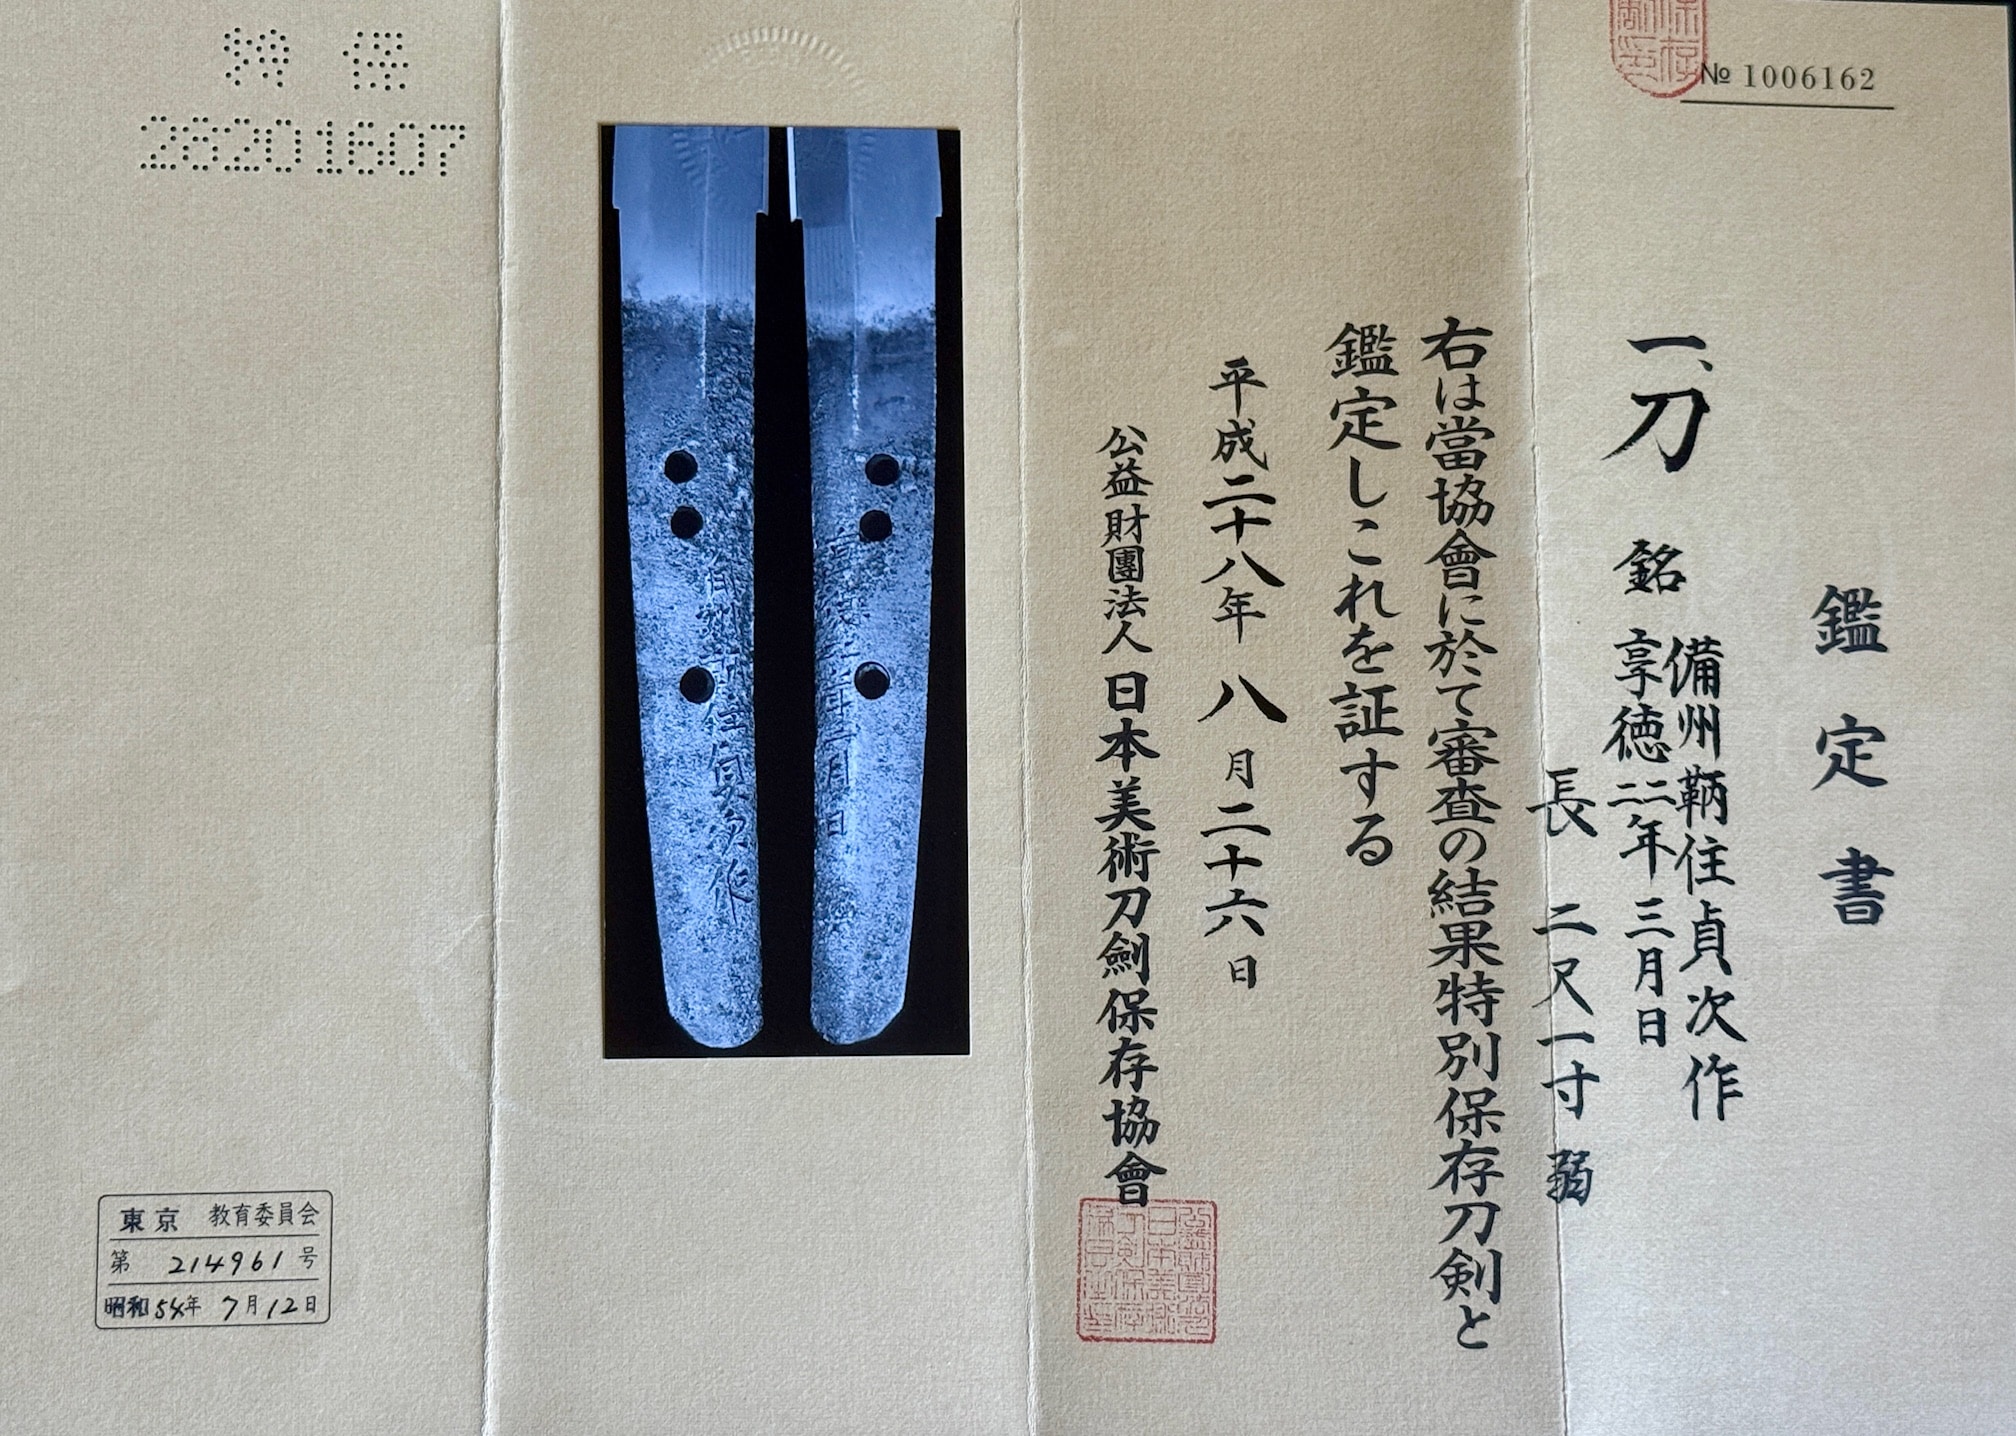 № 1006162
鑑定書
一、刀
銘 備州鞆住貞次作
享徳二二年三月日
長 二尺一寸 弱
右は當協會に於て審査の結果特別保存刀剣と
鑑定しこれを証する
平成二十八年 八 月二十六日
公益財團法人 日本美術刀劍保存協會
特 保
26201607
東京 教育委員会
第 214961 号
昭和54年 7月12日